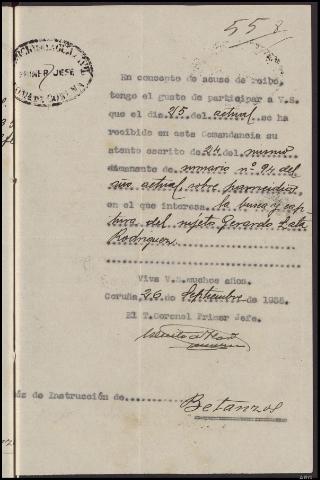 558
PRIMER JEFE
En concepto de acuse de recibo,
tengo el gusto de participar a V.S.
que el dia 25 del actual se ha
recibido en esta Comandancia su
atento escrito de 24 del mismo
dimanante de sumario nº 94 del
año actual sobre
en el que interesa la busca y cap
tura del sujeto Gerardo Lata
Rodriguez
Viva V.S. muchos años.
Coruña 26 de Septiembre de 1935.
El T.Coronel Primer Jefe.
de Instrucción de Betanzos